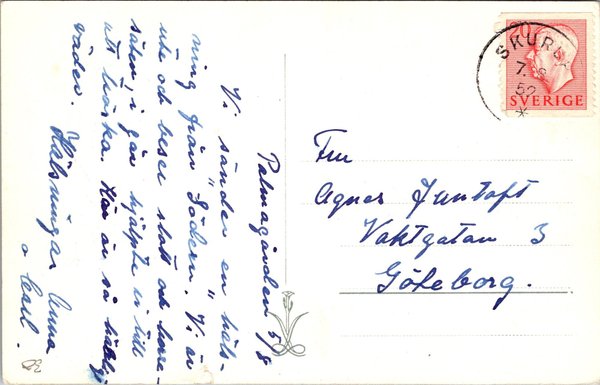 Palmagården 5/8
Vi sänder en häls-
ning från Södern. Vi är
ute och beser slott och herre-
säten, i går hjälpte vi till
att tröska. Här är så härligt
väder.
Hälsningar Anna
o Carl.
20
SKURUP
7.
52
*
SVERIGE
Fru
Agnes Juntoft
Vaktgatan 3
Göteborg.